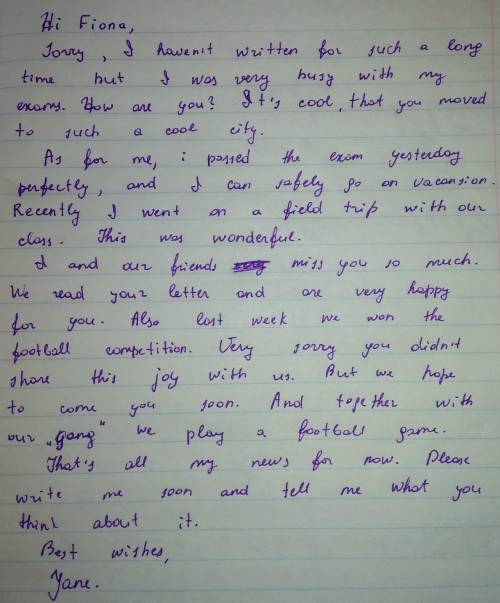 Hi Fiona,
Sorry, I haven't written for such a long
time but I was very busy with my
exams. How are you? It's cool, that you moved
to such a cool city.
As for me, i passed the exam yesterday
perfectly, and I can safely go on vacansion.
Recently I went on a field trip with our
class. This was wonderful.
I and our friends miss you so much.
We read your letter and are very happy
for you. Also last week we won the
football competition. Very sorry you didn't
share this joy with us. But we hope
to come you soon. And together with
our „gang“ we play a football game.
That's all my news for now. Please
write me soon and tell me what you
think about it.
Best wishes,
Yane.